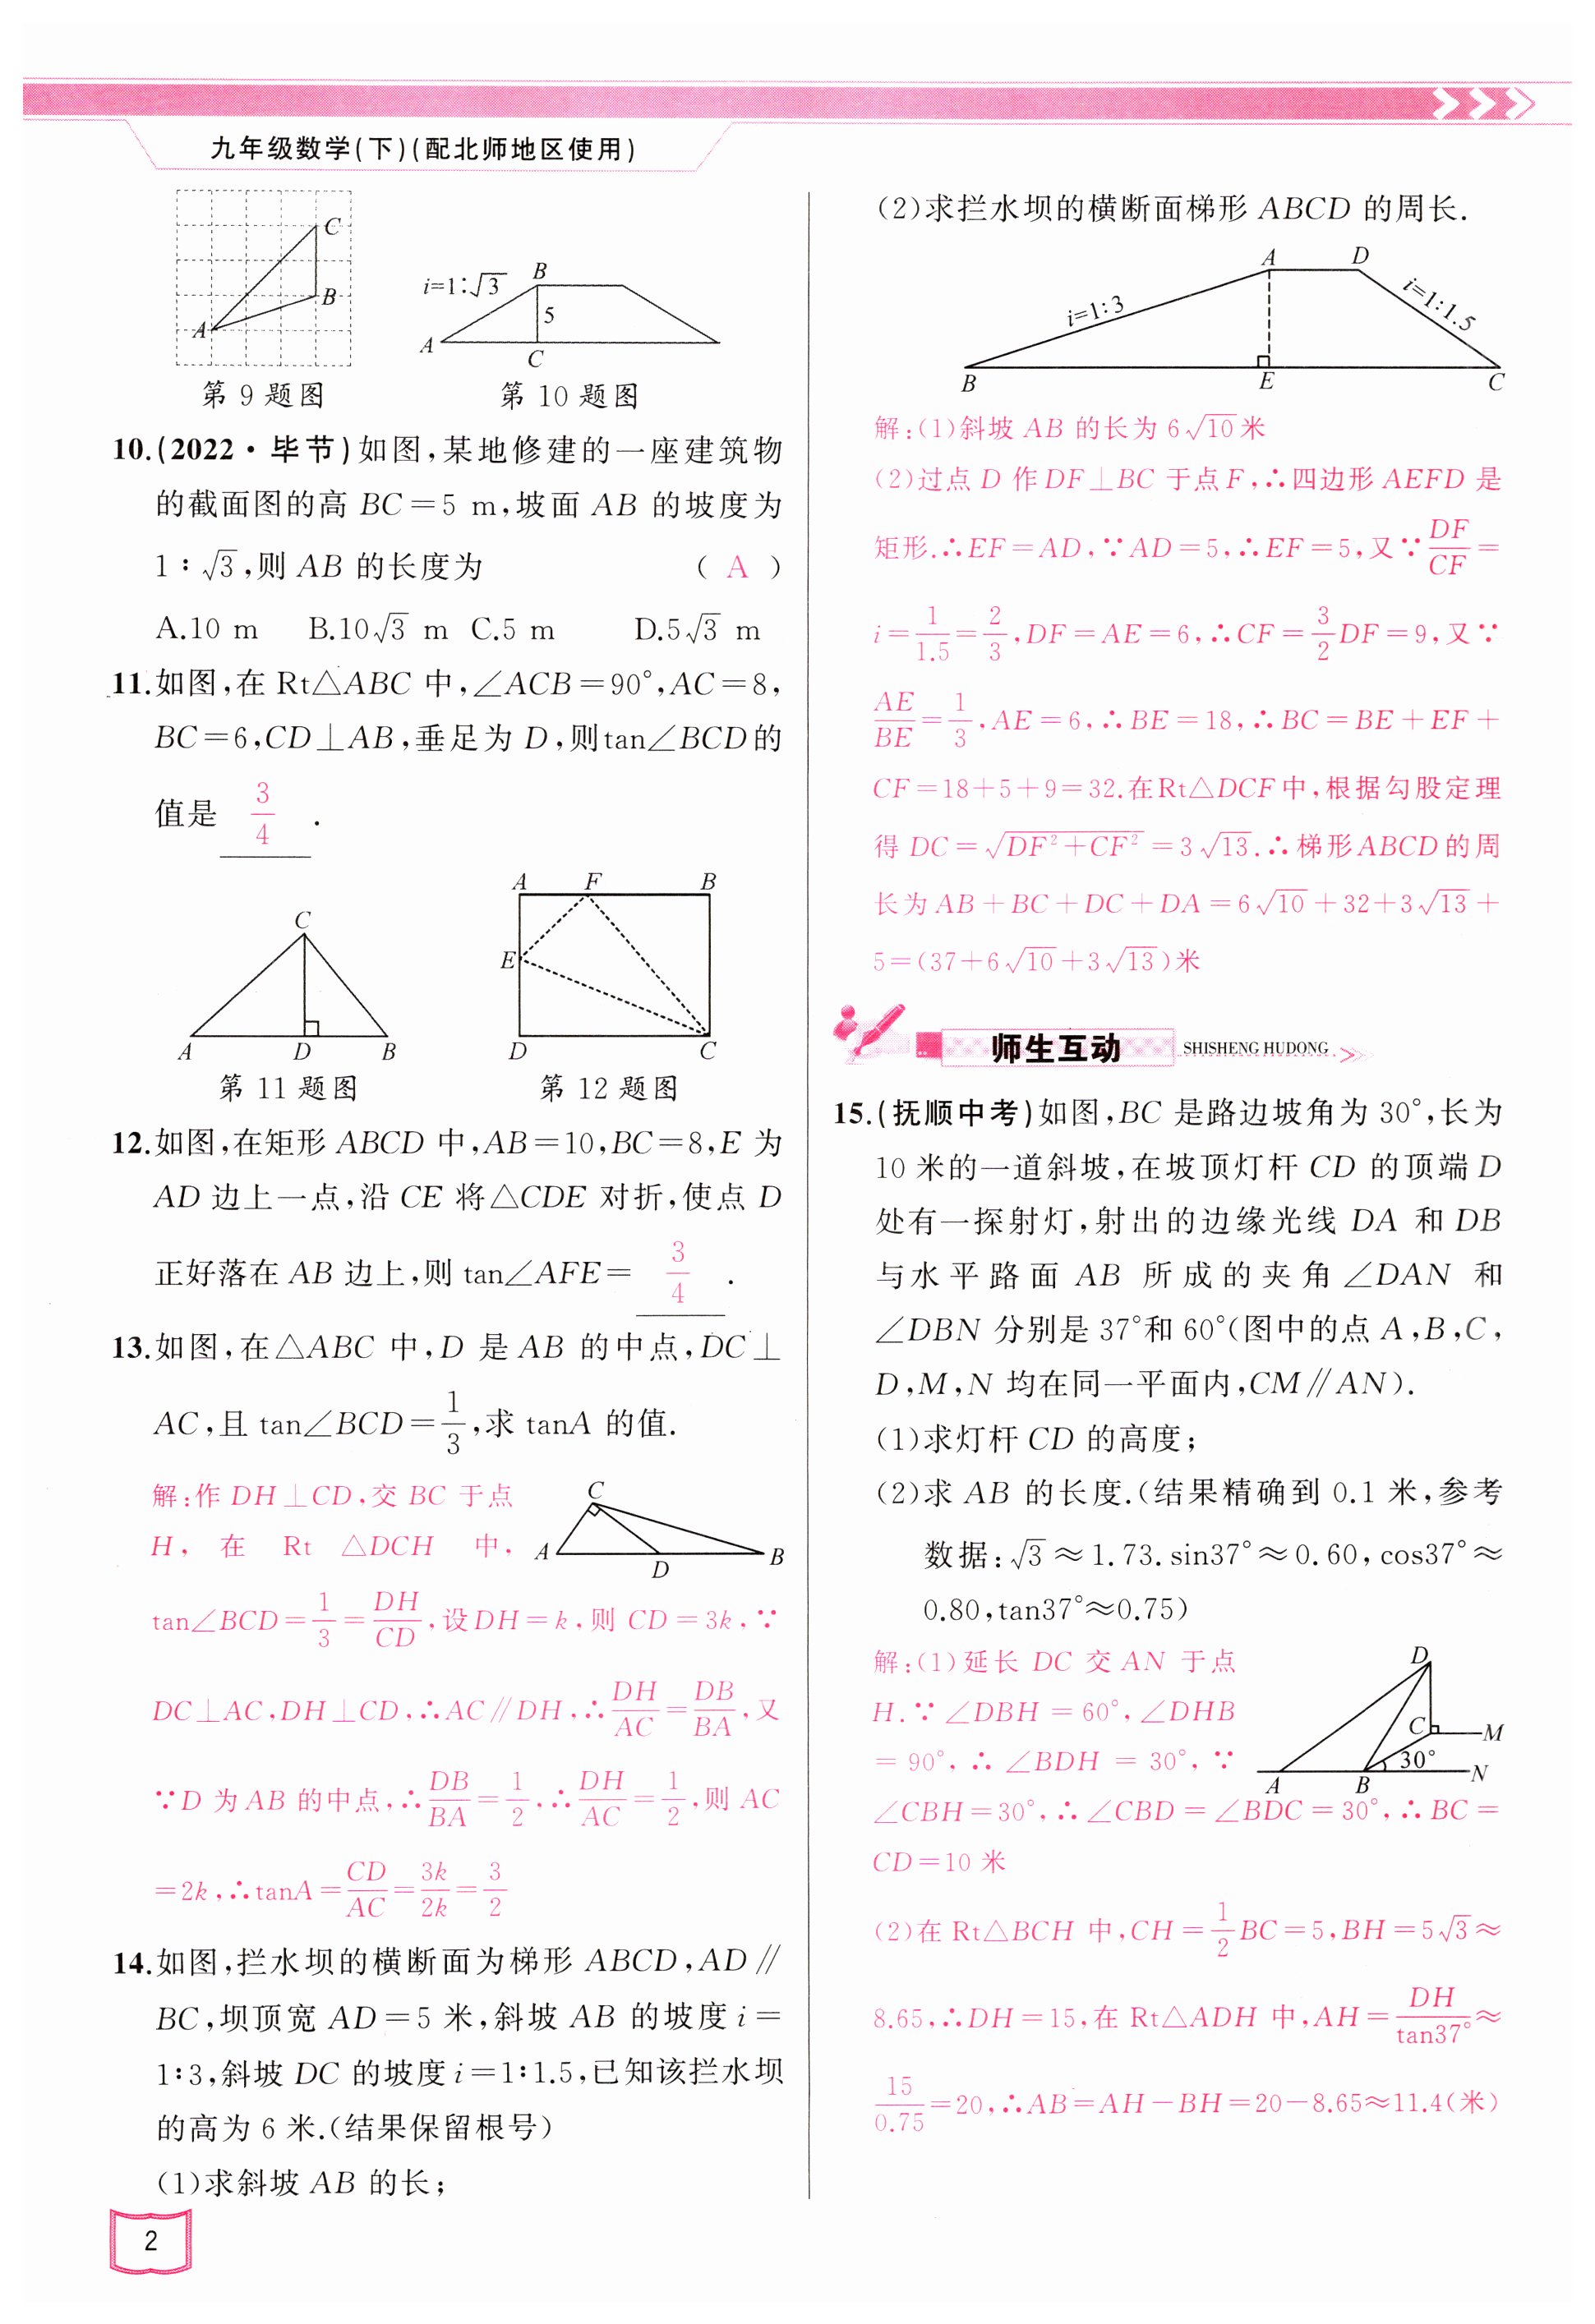 九年级数学(下)(配北师地区使用)
C
B
A
第 9 题图
i=1∶√3
B
5
A
C
第 10 题图
10.(2022·毕节)如图,某地修建的一座建筑物
的截面图的高 BC=5 m,坡面 AB 的坡度为
1∶√3,则 AB 的长度为 ( A )
A.10 m B.10√3 m C.5 m D.5√3 m
11.如图,在 Rt△ABC 中,∠ACB=90°,AC=8,
BC=6,CD⊥AB,垂足为 D,则tan∠BCD的
值是 3/4 .
C
A D B
第 11 题图
A F B
E
D C
第 12 题图
12.如图,在矩形 ABCD 中,AB=10,BC=8,E 为
AD 边上一点,沿 CE 将△CDE 对折,使点 D
正好落在 AB 边上,则 tan∠AFE= 3/4 .
13.如图,在△ABC 中,D 是 AB 的中点,DC⊥
AC,且 tan∠BCD=1/3,求 tanA 的值.
解:作 DH⊥CD,交 BC 于点
H, 在 Rt △DCH 中,
C
A
D
B
tan∠BCD=1/3=DH/CD,设DH=k,则 CD=3k,∵
DC⊥AC,DH⊥CD,∴AC∥DH,∴DH/AC=DB/BA,又
∵D 为AB 的中点,∴DB/BA=1/2,∴DH/AC=1/2,则 AC
=2k,∴tanA=CD/AC=3k/2k=3/2
14.如图,拦水坝的横断面为梯形 ABCD,AD∥
BC,坝顶宽 AD=5 米,斜坡 AB 的坡度 i=
1∶3,斜坡 DC 的坡度 i=1∶1.5,已知该拦水坝
的高为 6 米.(结果保留根号)
(1)求斜坡 AB 的长;
2
(2)求拦水坝的横断面梯形 ABCD 的周长.
A D
i=1∶3
i=1∶1.5
B E C
解:(1)斜坡 AB 的长为 6√10米
(2)过点 D 作DF⊥BC 于点F,∴四边形 AEFD 是
矩形.∴EF=AD,∵AD=5,∴EF=5,又∵DF/CF=
i=1/1.5=2/3,DF=AE=6,∴CF=3/2DF=9,又∵
AE/BE=1/3,AE=6,∴BE=18,∴BC=BE+EF+
CF=18+5+9=32.在Rt△DCF中,根据勾股定理
得 DC=√(DF²+CF²)=3√13.∴梯形ABCD的周
长为AB+BC+DC+DA=6√10+32+3√13+
5=(37+6√10+3√13)米
师生互动 SHISHENG HUDONG
15.(抚顺中考)如图,BC 是路边坡角为 30°,长为
10 米的一道斜坡,在坡顶灯杆 CD 的顶端 D
处有一探射灯,射出的边缘光线 DA 和 DB
与水平路面 AB 所成的夹角∠DAN 和
∠DBN 分别是 37°和 60°(图中的点 A,B,C,
D,M,N 均在同一平面内,CM∥AN).
(1)求灯杆 CD 的高度;
(2)求 AB 的长度.(结果精确到 0.1 米,参考
数据:√3≈1.73.sin37°≈0.60,cos37°≈
0.80,tan37°≈0.75)
解:(1)延长 DC 交 AN 于点
H.∵∠DBH=60°,∠DHB
=90°,∴∠BDH=30°,∵
D
C
M
30°
A
B
N
∠CBH=30°,∴∠CBD=∠BDC=30°,∴BC=
CD=10 米
(2)在 Rt△BCH 中,CH=1/2BC=5,BH=5√3≈
8.65,∴DH=15,在 Rt△ADH 中,AH=DH/tan37°≈
15/0.75=20,∴AB=AH-BH=20-8.65≈11.4(米)